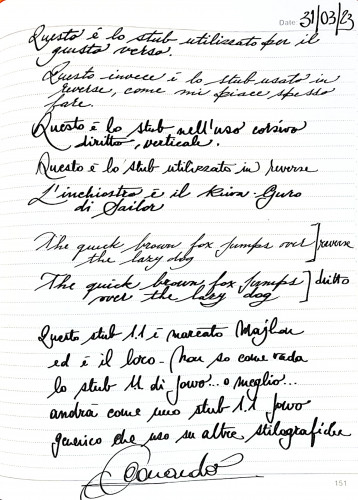 Date 31/03/23
Questo è lo stub utilizzato per il
giusto verso.
Questo invece è lo stub usato in
reverse, come mi piace spesso
fare.
Questo è lo stub nell'uso corsivo
diritto, verticale.
Questo è lo stub utilizzato in reverse
L'inchiostro è il Kiwa-Guro
di Sailor
The quick brown fox jumps over
the lazy dog ] reverse
The quick brown fox jumps
over the lazy dog ] dritto
Questo stub 1.1 è marcato Majhon
ed è il loro. Non so come vada
lo stub 1.1 di Jowo... o meglio...
andrà come uno stub 1.1 Jowo
generico che uso su altre stilografiche
151